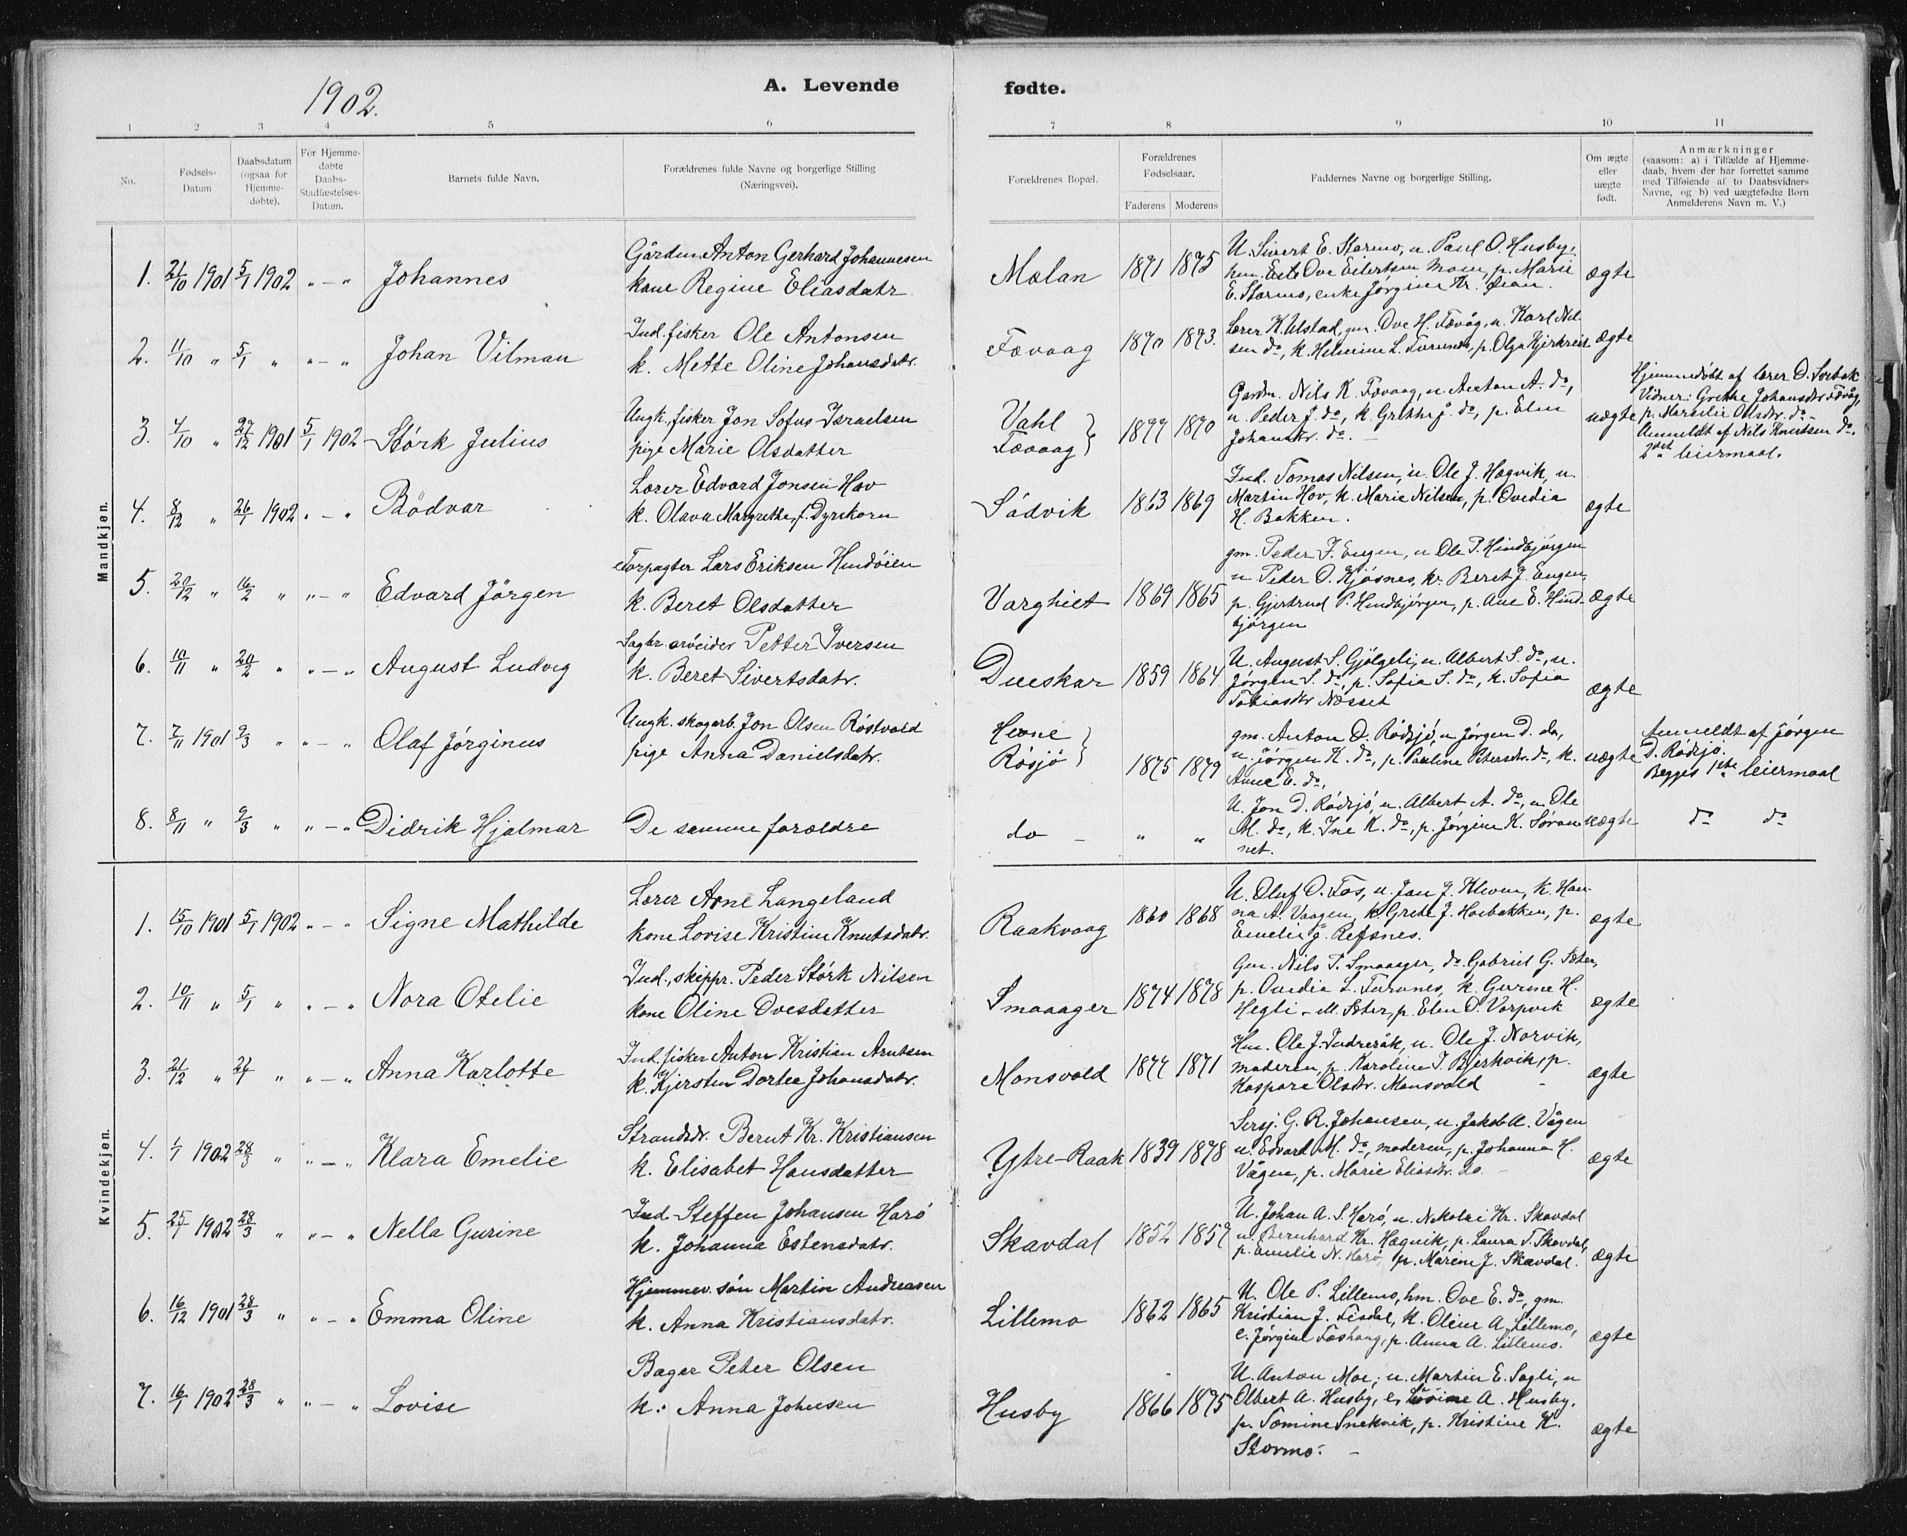 1902.
A. Levende
fødte.
1 2 3 4 5 6 7 8 9 10 11
No.
Fødsels-
Datum
Daabsdatum
(ogsaa for
Hjemme-
døbte).
For Hjemme-
døbte
Daabs-
Stadfæstelses-
Datum.
Barnets fulde Navn.
Forældrenes fulde Navne og borgerlige Stilling
(Næringsvei).
Forældrenes Bopæl.
Forældrenes
Fødselsaar.
Faderens
Moderens
Faddernes Navne og borgerlige Stilling.
Om ægte
eller
uægte
født.
Anmærkninger
(saasom: a) i Tilfælde af Hjemme-
daab, hvem der har forrettet samme
med Tilføiende af to Daabsvidners
Navne, og b) ved uægtefødte Børn
Anmelderens Navn m. V.)
Mandkjøn.
1. 21/10 1901 5/1 1902 „ – „ Johannes
Gårdm. Anton Gerhard Johannesen
kone Regine Eliasdatr.
Molan 1871 1875
U. Sivert E. Stormo, u. Paul O. Husby,
Ove Eilertsen Moen, p. Marie
E. Stormo, enke Jørgine Kr.
ægte
2. 11/10 „ 5/1 „ „ – „ Johan Vilman
Ind. fisker Ole Antonsen
k. Mette Oline Johansdatr.
Fævaag 1870 1873.
Lærer K. Ulstad, gm. Ove H. Fævåg, u. Karl Nil-
sen do, k. Helmine L. Furunes, p. Olga
ægte
3. 4/10 „ 27/12 1901 5/1 1902 Størk Julius
Ungk. fisker Jon Sofus Israelsen
pige Marie Olsdatter
Vahl
Fævaag } 1877 1870
Gaardm. Nils K. Fævaag, u. Anton A. do,
u. Peder J. do, k. Grethe J. do, p. Elen
Johansdr. do. –
uægte
Hjemmedøbt af lærer O. Sorbak
Vidner: Grethe Johansdr Fævåg,
p. Marselie Olsdr. do –
Anmeldt af Nils Knutsen do.
2det leiermaal.
4. 8/12 „ 26/1 1902 „ – „ Bödvar
Lærer Edvard Jonsen Hov
k. Olava Margrethe, f. Dyrskorn
Sødvik 1863 1869
Ind. Tomas Nilsen, u. Ole J. Hagvik, u.
Martin Hov, k. Marie Nilsen, p. Ovedia
H. Bakken.
ægte
5. 20/12 „ 16/2 „ „ – „ Edvard Jörgen
Forpagter Lars Eriksen Hindöien
k. Beret Olsdatter
Varghiet 1869 1865
gm. Peder J. Engen, u Ole P. Hindbjørgen
u Peder O. Kjøsnes, k. Beret J. Engen,
p. Gjertrud P. Hindbjørgen, p. Ane E. Hind-
bjørgen
ægte
6. 10/11 „ 20/2 „ „ – „ August Ludvig
Sagbr. arbeider Petter Iversen
k. Beret Sivertsdatr.
Dueskar 1859 1864.
U. August S. Gjølgeli, u. Albert S. do, u.
Jørgen S. do, p. Sofia S. do, k. Sofia
Tobiasdr Næsset
ægte
7. 7/11 1901 9/3 „ „ – „ Olaf Jørginus
Ungk. skogarb. Jon Olsen Röstvold
pige Anna Danielsdatr.
Hevne
Røsjø } 1875 1879
gm. Anton D. Rødsjø, u Jørgen D. do,
u. Jørgen K. do, p. Pauline Petersdr. do, k.
Anne E. do,
uægte
Anmeldt af Jørgen
D. Rødsjø.
Begges 1ste leiermaal
8. 8/11 „ 9/3 „ „ – „ Didrik Hjalmar
De samme forældre
do – „ „
U. Jon D. Rødsjø, u. Albert A. do, u Ole
M. do, k. Ine K. do, p. Jørgine K. Søran-
net.
uægte
do do
Kvindekjøn.
1. 15/10 1901 5/1 1902 „ – „ Signe Mathilde
Lærer Arne Langeland
kone Lovise Kristine Knutsdatr.
Raakvaag 1860 1868
U. Oluf O. Fos, u. Jan J. Kleven, k. Han-
na A. Vaagen, k. Grete J. Hovbakken, p.
Emelie J. Refsnes.
ægte
2. 10/11 „ 5/1 „ „ – „ Nora Otelie
Ind., skippr. Peder Størk Nilsen
kone Oline Ovesdatter
Smaaager 1874 1878
Gm. Nils P. Smaager, do Gabriel G. Sæter,
p. Ovedia L. Furunes, k. Gurine H.
Hegli – M. Sæter, p. Elen O. Vorpvik
ægte
3. 21/12 „ 26/1 „ „ – „ Anna Karlotte
Ind. fisker Anton Kristian Arntsen
k. Kjersten Dortea Johansdatr.
Monsvold 1877 1871
Hm. Ole J. Indreråk, u. Ole J. Norvik,
moderen, p. Karoline J. Bjerkvik, p.
Kaspara Olsdr. Monsvold –
ægte
4. 1/1 1902 28/3 „ „ – „ Klara Emelie
Strandsdr. Bernt Kr. Kristiansen
k. Elisabet Hansdatter
Ytre-Raak 1839 1878
Sersj. G. R. Johansen, u. Jakob A. Vågen
u. Edvard M. do, moderen, p. Johanna H.
Vågen, p. Marie Eliasdr. do –
ægte
5. 25/1 1902 28/3 „ „ – „ Nella Gurine
Ind. Steffen Johansen Harø
k. Johanna Estensdatr.
Skavdal 1852 1859
U. Johan A. S. Harø, u. Nikolai Kr. Skavdal
u. Bernhard Kr. Hagvik, p. Laura T. Skavdal,
p. Emelie N. Harø, p. Marine J. Skavdal.
ægte
6. 16/12 1901 28/3 „ „ – „ Emma Oline
Hjemmev. søn Martin Andreasen
k. Anna Kristiansdatr.
Lillemo 1862 1865
U. Ole P. Lillemo, hm. Ove E. do, gm.
Kristian J. Fisdal, k. Oline A. Lillemo,
e. Jørgine Foshaug, p. Anna A. Lillemo.
ægte
7. 16/1 1902 28/3 „ „ – „ Lovise
Bager Peter Olsen
k. Anna Johnsen
Husby 1866 1875
U. Anton Moe, u. Martin E. Sagli, u
Olbert A. Husby, e. A. Husby,
p. Tomine Snekvik, p. Kristine K.
Stormo. –
ægte